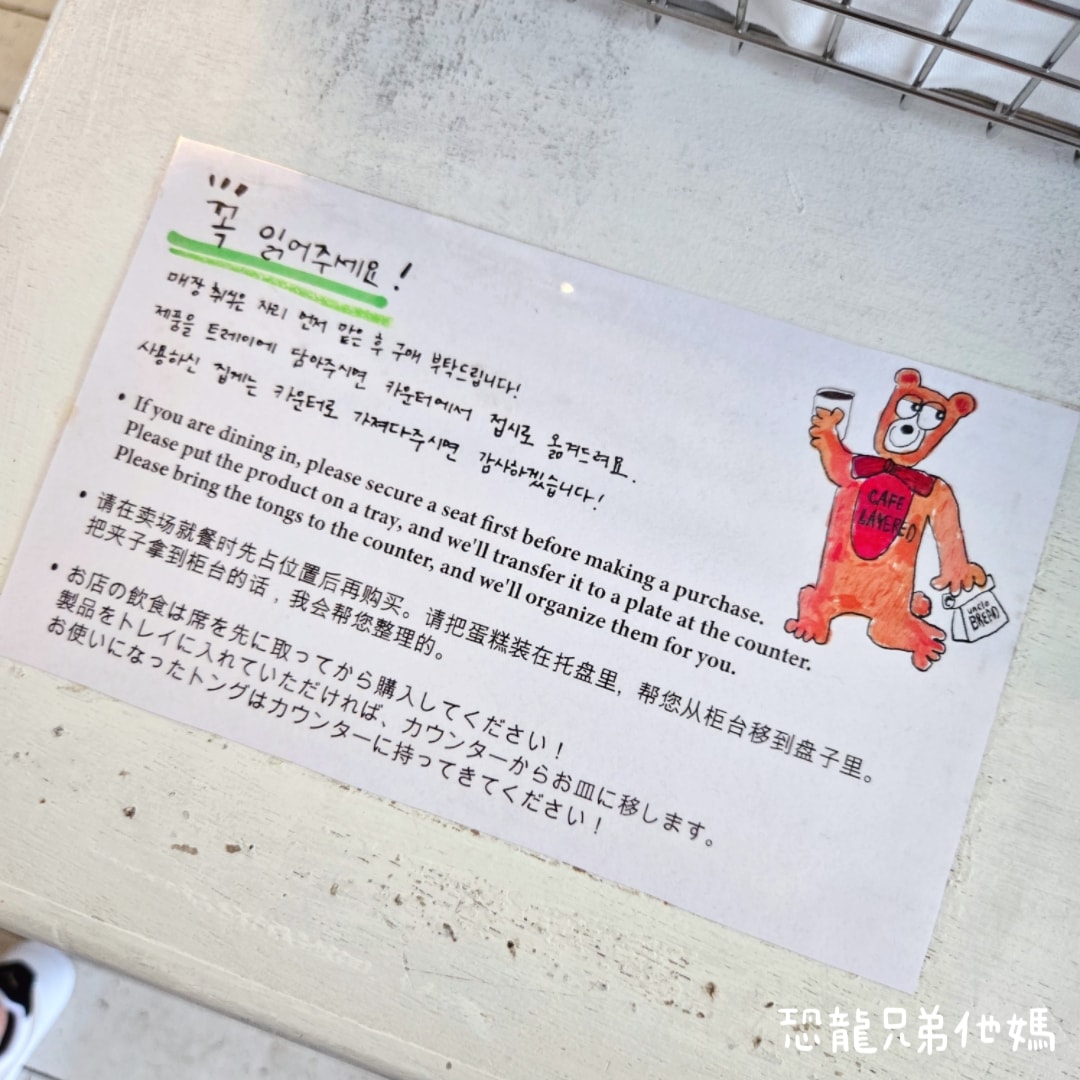 꼭 읽어주세요!
매장 취식은 자리 먼저 맡은 후 구매 부탁드립니다!
제품을 트레이에 담아주시면 카운터에서 접시로 옮겨드려요.
사용하신 집게는 카운터로 가져다주시면 감사하겠습니다!
• If you are dining in, please secure a seat first before making a purchase.
Please put the product on a tray, and we'll transfer it to a plate at the counter.
Please bring the tongs to the counter, and we'll organize them for you.
• 请在卖场就餐时先占位置后再购买。请把蛋糕装在托盘里，帮您从柜台移到盘子里。
把夹子拿到柜台的话，我会帮您整理的。
• お店の飲食は席を先に取ってから購入してください！
製品をトレイに入れていただければ、カウンターからお皿に移します。
お使いになったトングはカウンターに持ってきてください！
CAFE
LAYERED
uncle
BREAD
恐龍兄弟他媽